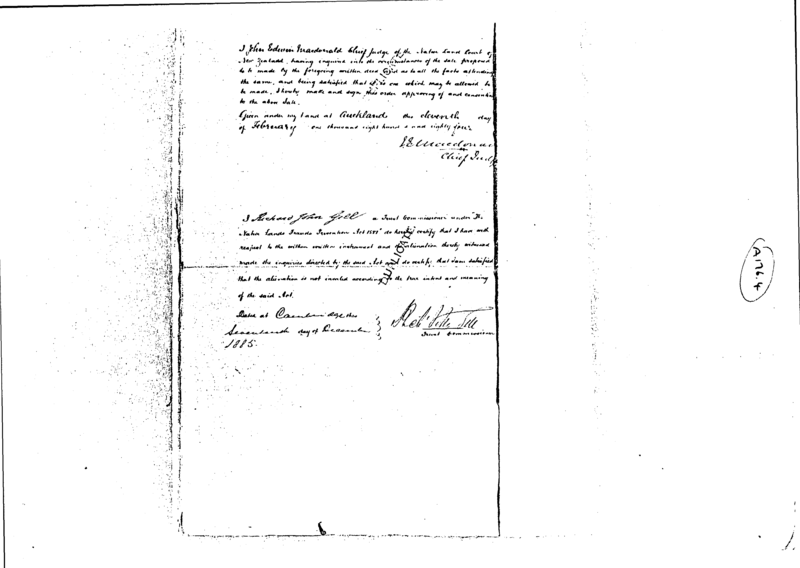 I John Edwin Macdonald Chief Judge of the Native Land Court of
New Zealand, having enquired into the circumstances of the sale proposed
to be made by the foregoing written deed and as to all the facts attending
the same, and being satisfied that it is one which may be allowed to
be made, I hereby made and sign this order approving of and
to the above Sale.
Given under my hand at Auckland this eleventh day
of February one thousand eight hundred and eighty four
J E Macdonald
Chief Judge
I Richard John Gill a Trust Commissioner under "The
Native Lands Frauds Prevention Act 1881" do hereby certify that I have with
respect to the within written instrument and the alienation thereby witnessed
made the inquiries directed by the said Act and do certify that I am satisfied
that the alienation is not invalid according to the true intent and meaning
of the said Act.
Dated at Cambridge this
Seventeenth day of December
1885.
Trust Commissioner
A176.4